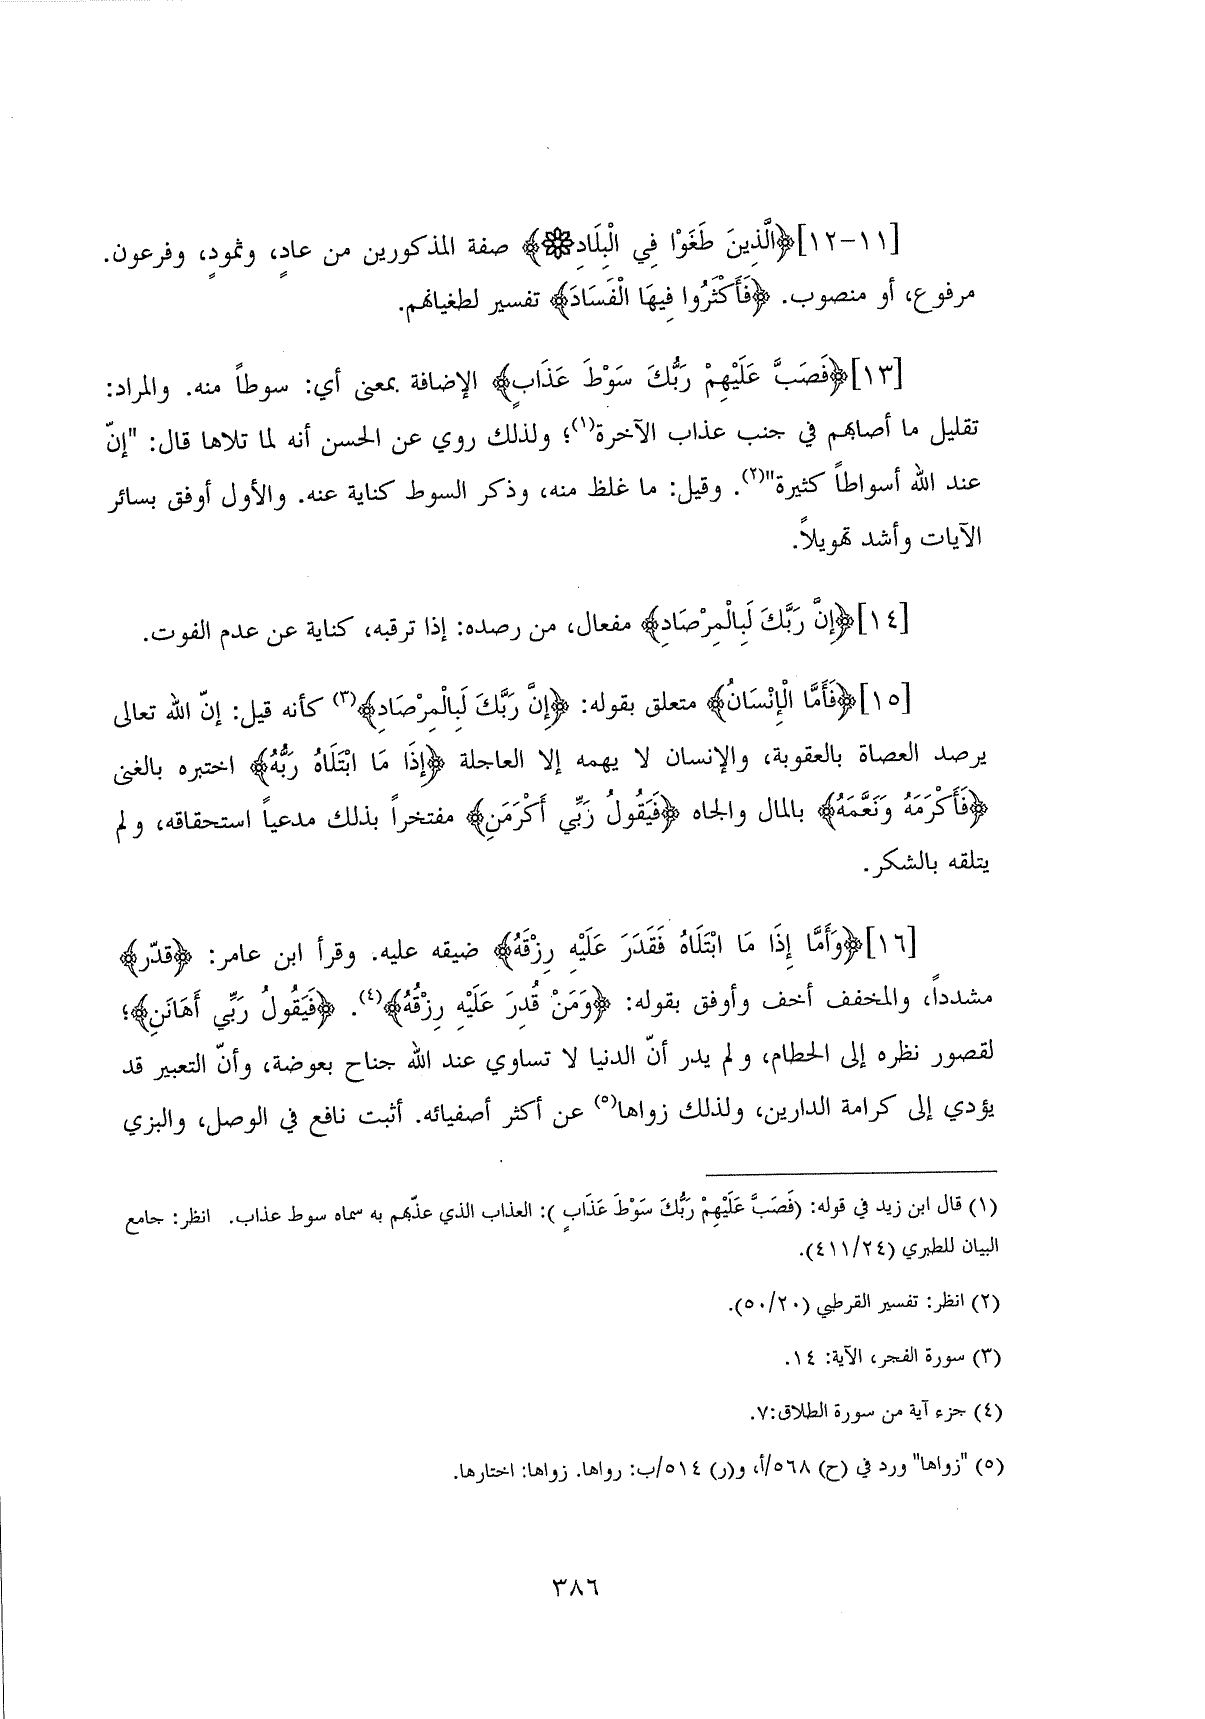 [١١-١٢]﴿الَّذِينَ طَغَوْا فِي الْبِلَادِ۝﴾ صفة المذكورين من عادٍ، وثمودٍ، وفرعون.
مرفوع، أو منصوب. ﴿فَأَكْثَرُوا فِيهَا الْفَسَادَ﴾ تفسير لطغيانهم.
[١٣]﴿فَصَبَّ عَلَيْهِمْ رَبُّكَ سَوْطَ عَذَابٍ﴾ الإضافة بمعنى أي: سوطاً منه. والمراد:
تقليل ما أصابهم في جنب عذاب الآخرة(١)؛ ولذلك روي عن الحسن أنه لما تلاها قال: "إنّ
عند الله أسواطاً كثيرة"(٢). وقيل: ما غلظ منه، وذكر السوط كناية عنه. والأول أوفق بسائر
الآيات وأشد تهويلاً.
[١٤]﴿إِنَّ رَبَّكَ لَبِالْمِرْصَادِ﴾ مفعال، من رصده: إذا ترقبه، كناية عن عدم الفوت.
[١٥]﴿فَأَمَّا الْإِنْسَانُ﴾ متعلق بقوله: ﴿إِنَّ رَبَّكَ لَبِالْمِرْصَادِ﴾(٣) كأنه قيل: إنّ الله تعالى
يرصد العصاة بالعقوبة، والإنسان لا يهمه إلا العاجلة ﴿إِذَا مَا ابْتَلَاهُ رَبُّهُ﴾ اختبره بالغنى
﴿فَأَكْرَمَهُ وَنَعَّمَهُ﴾ بالمال والجاه ﴿فَيَقُولُ رَبِّي أَكْرَمَنِ﴾ مفتخراً بذلك مدعياً استحقاقه، و لم
يتلقه بالشكر.
[١٦]﴿وَأَمَّا إِذَا مَا ابْتَلَاهُ فَقَدَرَ عَلَيْهِ رِزْقَهُ﴾ ضيقه عليه. وقرأ ابن عامر: ﴿قدّر﴾
مشدداً، والمخفف أخف وأوفق بقوله: ﴿وَمَنْ قُدِرَ عَلَيْهِ رِزْقُهُ﴾(٤). ﴿فَيَقُولُ رَبِّي أَهَانَنِ﴾؛
لقصور نظره إلى الحطام، و لم يدر أنّ الدنيا لا تساوي عند الله جناح بعوضة، وأنّ التعبير قد
يؤدي إلى كرامة الدارين، ولذلك زواها(٥) عن أكثر أصفيائه. أثبت نافع في الوصل، والبزي
(١) قال ابن زيد في قوله: (فَصَبَّ عَلَيْهِمْ رَبُّكَ سَوْطَ عَذَابٍ ): العذاب الذي عذّبهم به سماه سوط عذاب. انظر: جامع
البيان للطبري (٤١١/٢٤).
(٢) انظر: تفسير القرطبي (٥٠/٢٠).
(٣) سورة الفجر، الآية: ١٤.
(٤) جزء آية من سورة الطلاق:٧.
(٥) "زواها" ورد في (ح) ٥٦٨/أ، و(ر) ٥١٤/ب: رواها. زواها: اختارها.
٣٨٦